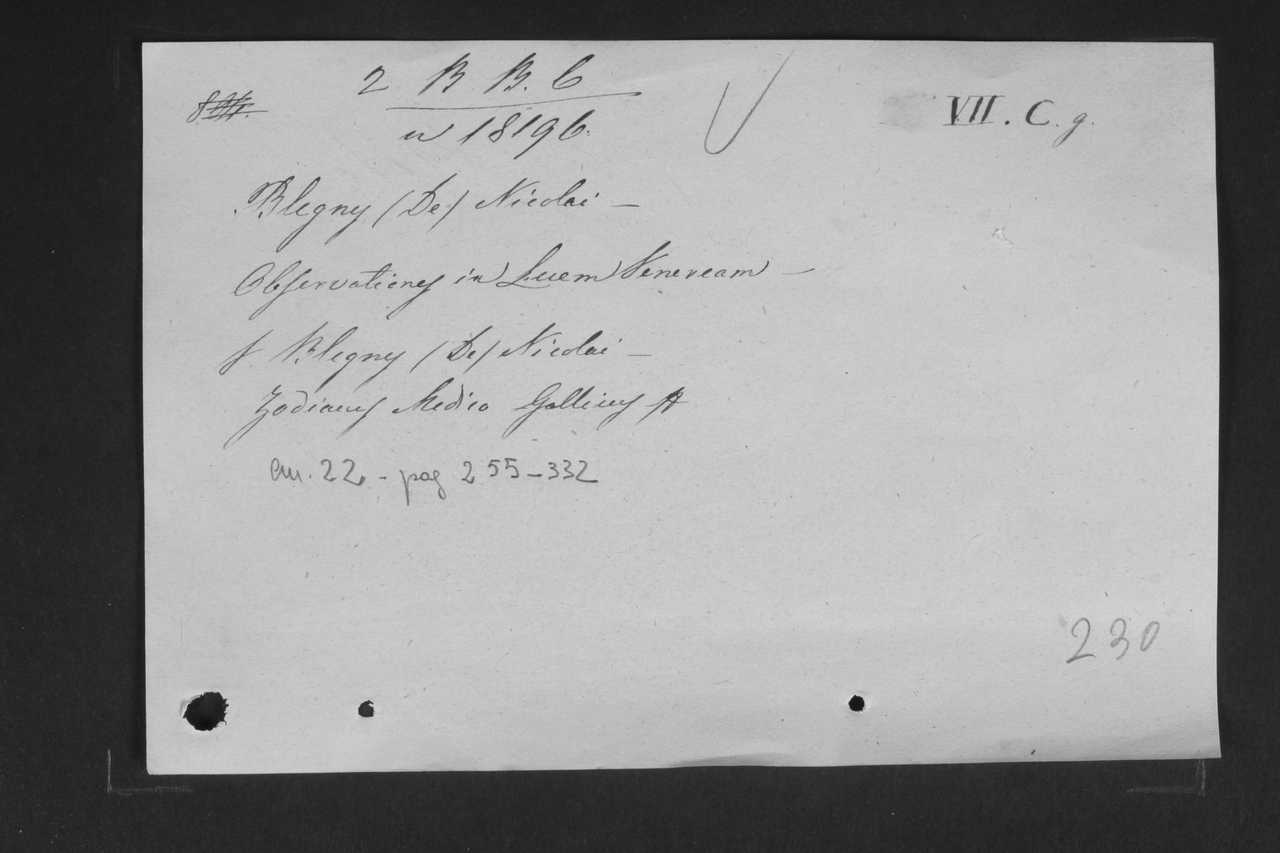 2 B B. C
VII. C. g.
n 18196.
Blegny (De) Nicolai —
Observationes in Luem Veneream —
f. Blegny (De) Nicolai —
Zodiacus Medico Gallicus
an. 22 - pag 255-332
230